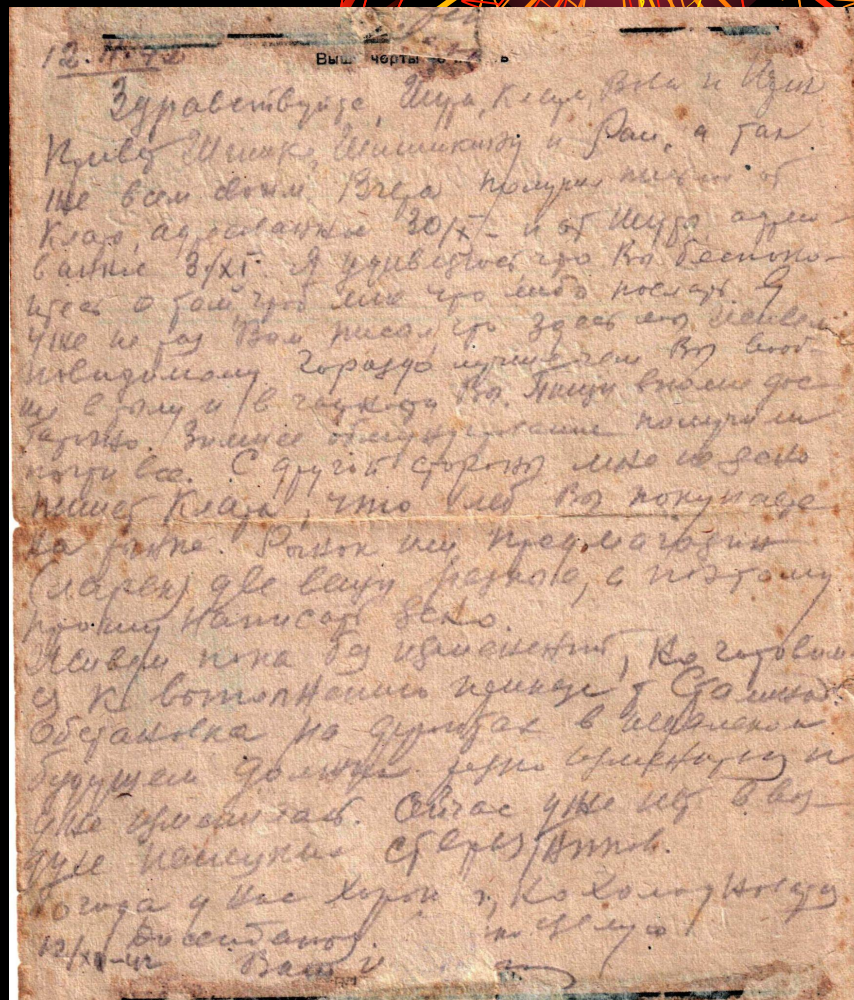 12.11.42
Выше черты не писать
Здравствуйте, Шура, Клара, Вова и
Привет и Раи, а так
же всем своим. Вчера получил письмо от
Клары, адресованное 30/X и от Шуры адресо-
ванное 3/XI. Я удивляюсь что Вы беспоко-
итесь о том чтоб мне что либо послать. Я
уже не раз Вам писал что здесь мы живем
повидимому гораздо лучше чем Вы вооб-
ще в тылу и в частности Вы. Пищи вполне дос-
таточно. Зимнее обмундирование получили
почти все. С другой стороны мне не ясно
пишет Клара, что хлеб Вы покупаете
на рынке. Рынок или продмагазин
(ларек) две вещи разные, а поэтому
прошу написать ясно.
Живем пока без изменений, но готовим
ся к выполнению приказа т. Сталина.
Обстановка на фронтах в недалеком
будущем должна резко измениться и
уже изменилась. Сейчас уже нет в воз-
духе немецких стервятников.
Погода у нас хорошая, но холодновато
До свиданья. целую
12/XI-42 Ваш